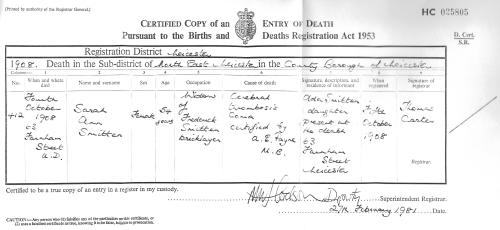 (Printed by authority of the Registrar General.)
HC 025805
CERTIFIED COPY of an ENTRY OF DEATH
Pursuant to the Births and Deaths Registration Act 1953
D. Cert.
S.R.
Registration District Leicester
1908. Death in the Sub-district of North East Leicester in the County Borough of Leicester
No. When and where died Name and surname Sex Age Occupation Cause of death Signature, description, and residence of informant When registered Signature of registrar
412 Fourth October 1908 63 Farnham Street U.D. Sarah Ann Smitten Female years Widow of Frederick Smitten Bricklayer Cerebral Thrombosis Coma Certified by M.B. Ada Smitten daughter Present at the death 63 Farnham Street Leicester Fifth October 1908 Thomas Carter Registrar.
Certified to be a true copy of an entry in a register in my custody.
Deputy Superintendent Registrar.
February 1981 Date.
CAUTION:—Any person who (1) falsifies any of the particulars on this certificate, or (2) uses a falsified certificate as true, knowing it to be false, is liable to prosecution.